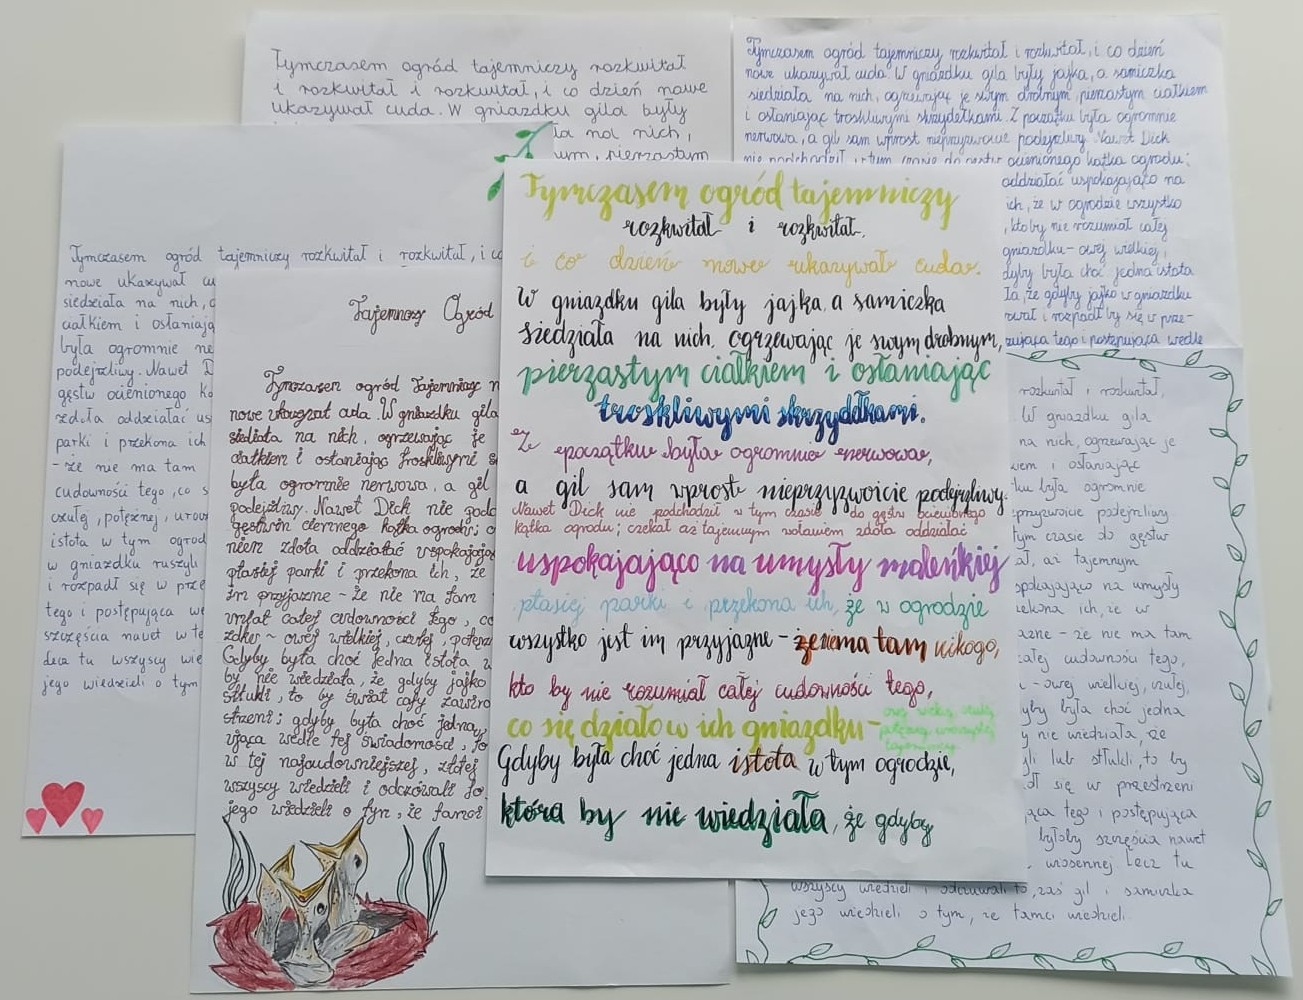 Tymczasem ogród tajemniczy rozkwitał
i rozkwitał i rozkwitał, i co dzień nowe
ukazywał cuda. W gniazdku gila były
ia na nich,
um, pierzastym
Tymczasem ogród tajemniczy rozkwitał i rozkwitał, i co dzień
nowe ukazywał cuda. W gniazdku gila były jajka, a samiczka
siedziała na nich, ogrzewając je swym drobnym, pierzastym ciałkiem
i osłaniając troskliwymi skrzydełkami. Z początku była ogromnie
nerwowa, a gil sam wprost nieprzyzwoicie podejrzliwy. Nawet Dick
nie podchodził w tym czasie do gęstw ocienionego kątka ogrodu;
oddziałać uspokajająco na
ich, że w ogrodzie wszystko
, kto by nie rozumiał całej
gniazdku - owej wielkiej,
dyby była choć jedna istota
ła, że gdyby jajko w gniazdku
rował i rozpadł by się w prze-
zująca tego i postępująca wedle
Tymczasem ogród tajemniczy rozkwitał i rozkwitał, i co
nowe ukazywał cu
siedziała na nich, o
ciałkiem i osłaniają
była ogromnie ne
podejrzliwy. Nawet D
gęstw ocienionego ką
zdoła oddziałać us
parki i przekona ich
- że nie ma tam
cudowności tego, co s
czułej, potężnej, urow
istota w tym ogrod
w gniazdku ruszyli
i rozpadł się w prze
tego i postępująca we
szczęścia nawet w te
Lecz tu wszyscy wie
jego wiedzieli o tym
Tajemniczy Ogród
Tymczasem ogród Tajemniczy r
nowe ukazywał cuda. W gniazdku gila
siedziała na nich, ogrzewając je
ciałkiem i osłaniając troskliwymi s
była ogromnie nerwowa, a gil
podejrzliwy. Nawet Dick nie podc
kątka ogrodu; c
niem zdoła oddziałać uspokajając
ptasiej parki i przekona ich, że
im przyjazne - że nie ma tam
całej cudowności tego, co
zdku - owej wielkiej, czułej, potężn
Gdyby była choć jedna istota w
by nie wiedziała, że gdyby jajko
stłukli, to by świat cały zawiro
strzeni; gdyby była choć jedna,
ująca wedle tej świadomości, to
w tej najcudowniejszej, złotej
wszyscy wiedzieli i odczuwali to
jego wiedzieli o tym, że tamci
Tymczasem ogród tajemniczy
rozkwitał i rozkwitał,
i co dzień nowe ukazywał cuda.
W gniazdku gila były jajka, a samiczka
siedziała na nich, ogrzewając je swym drobnym,
pierzastym ciałkiem i osłaniając
troskliwymi skrzydełkami.
Z początku była ogromnie nerwowa,
a gil sam wprost nieprzyzwoicie podejrzliwy.
Nawet Dick nie podchodził w tym czasie do gęstw ocienionego
kątka ogrodu; czekał aż tajemnym wołaniem zdoła oddziałać
uspokajająco na umysły maleńkiej
ptasiej parki i przekona ich, że w ogrodzie
wszystko jest im przyjazne - że nie ma tam nikogo,
kto by nie rozumiał całej cudowności tego,
co się działo w ich gniazdku -
owej wielkiej, czułej,
potężnej
Gdyby była choć jedna istota w tym ogrodzie,
która by nie wiedziała, że gdyby
rozkwitał i rozkwitał,
W gniazdku gila
na nich, ogrzewając je
kiem i osłaniając
ku była ogromnie
przyzwoicie podejrzliwy.
tym czasie do gęstw
ał, aż tajemnym
spokajająco na umysły
ekona ich, że w
azne - że nie ma tam
całej cudowności tego,
- owej wielkiej, czułej,
yby była choć jedna
y nie wiedziała, że
li lub stłukli, to by
dł się w przestrzeni
ąca tego i postępująca
byłoby szczęścia nawet
wiosennej Lecz tu
wszyscy wiedzieli i odczuwali to, zaś gil i samiczka
jego wiedzieli o tym, że tamci wiedzieli.